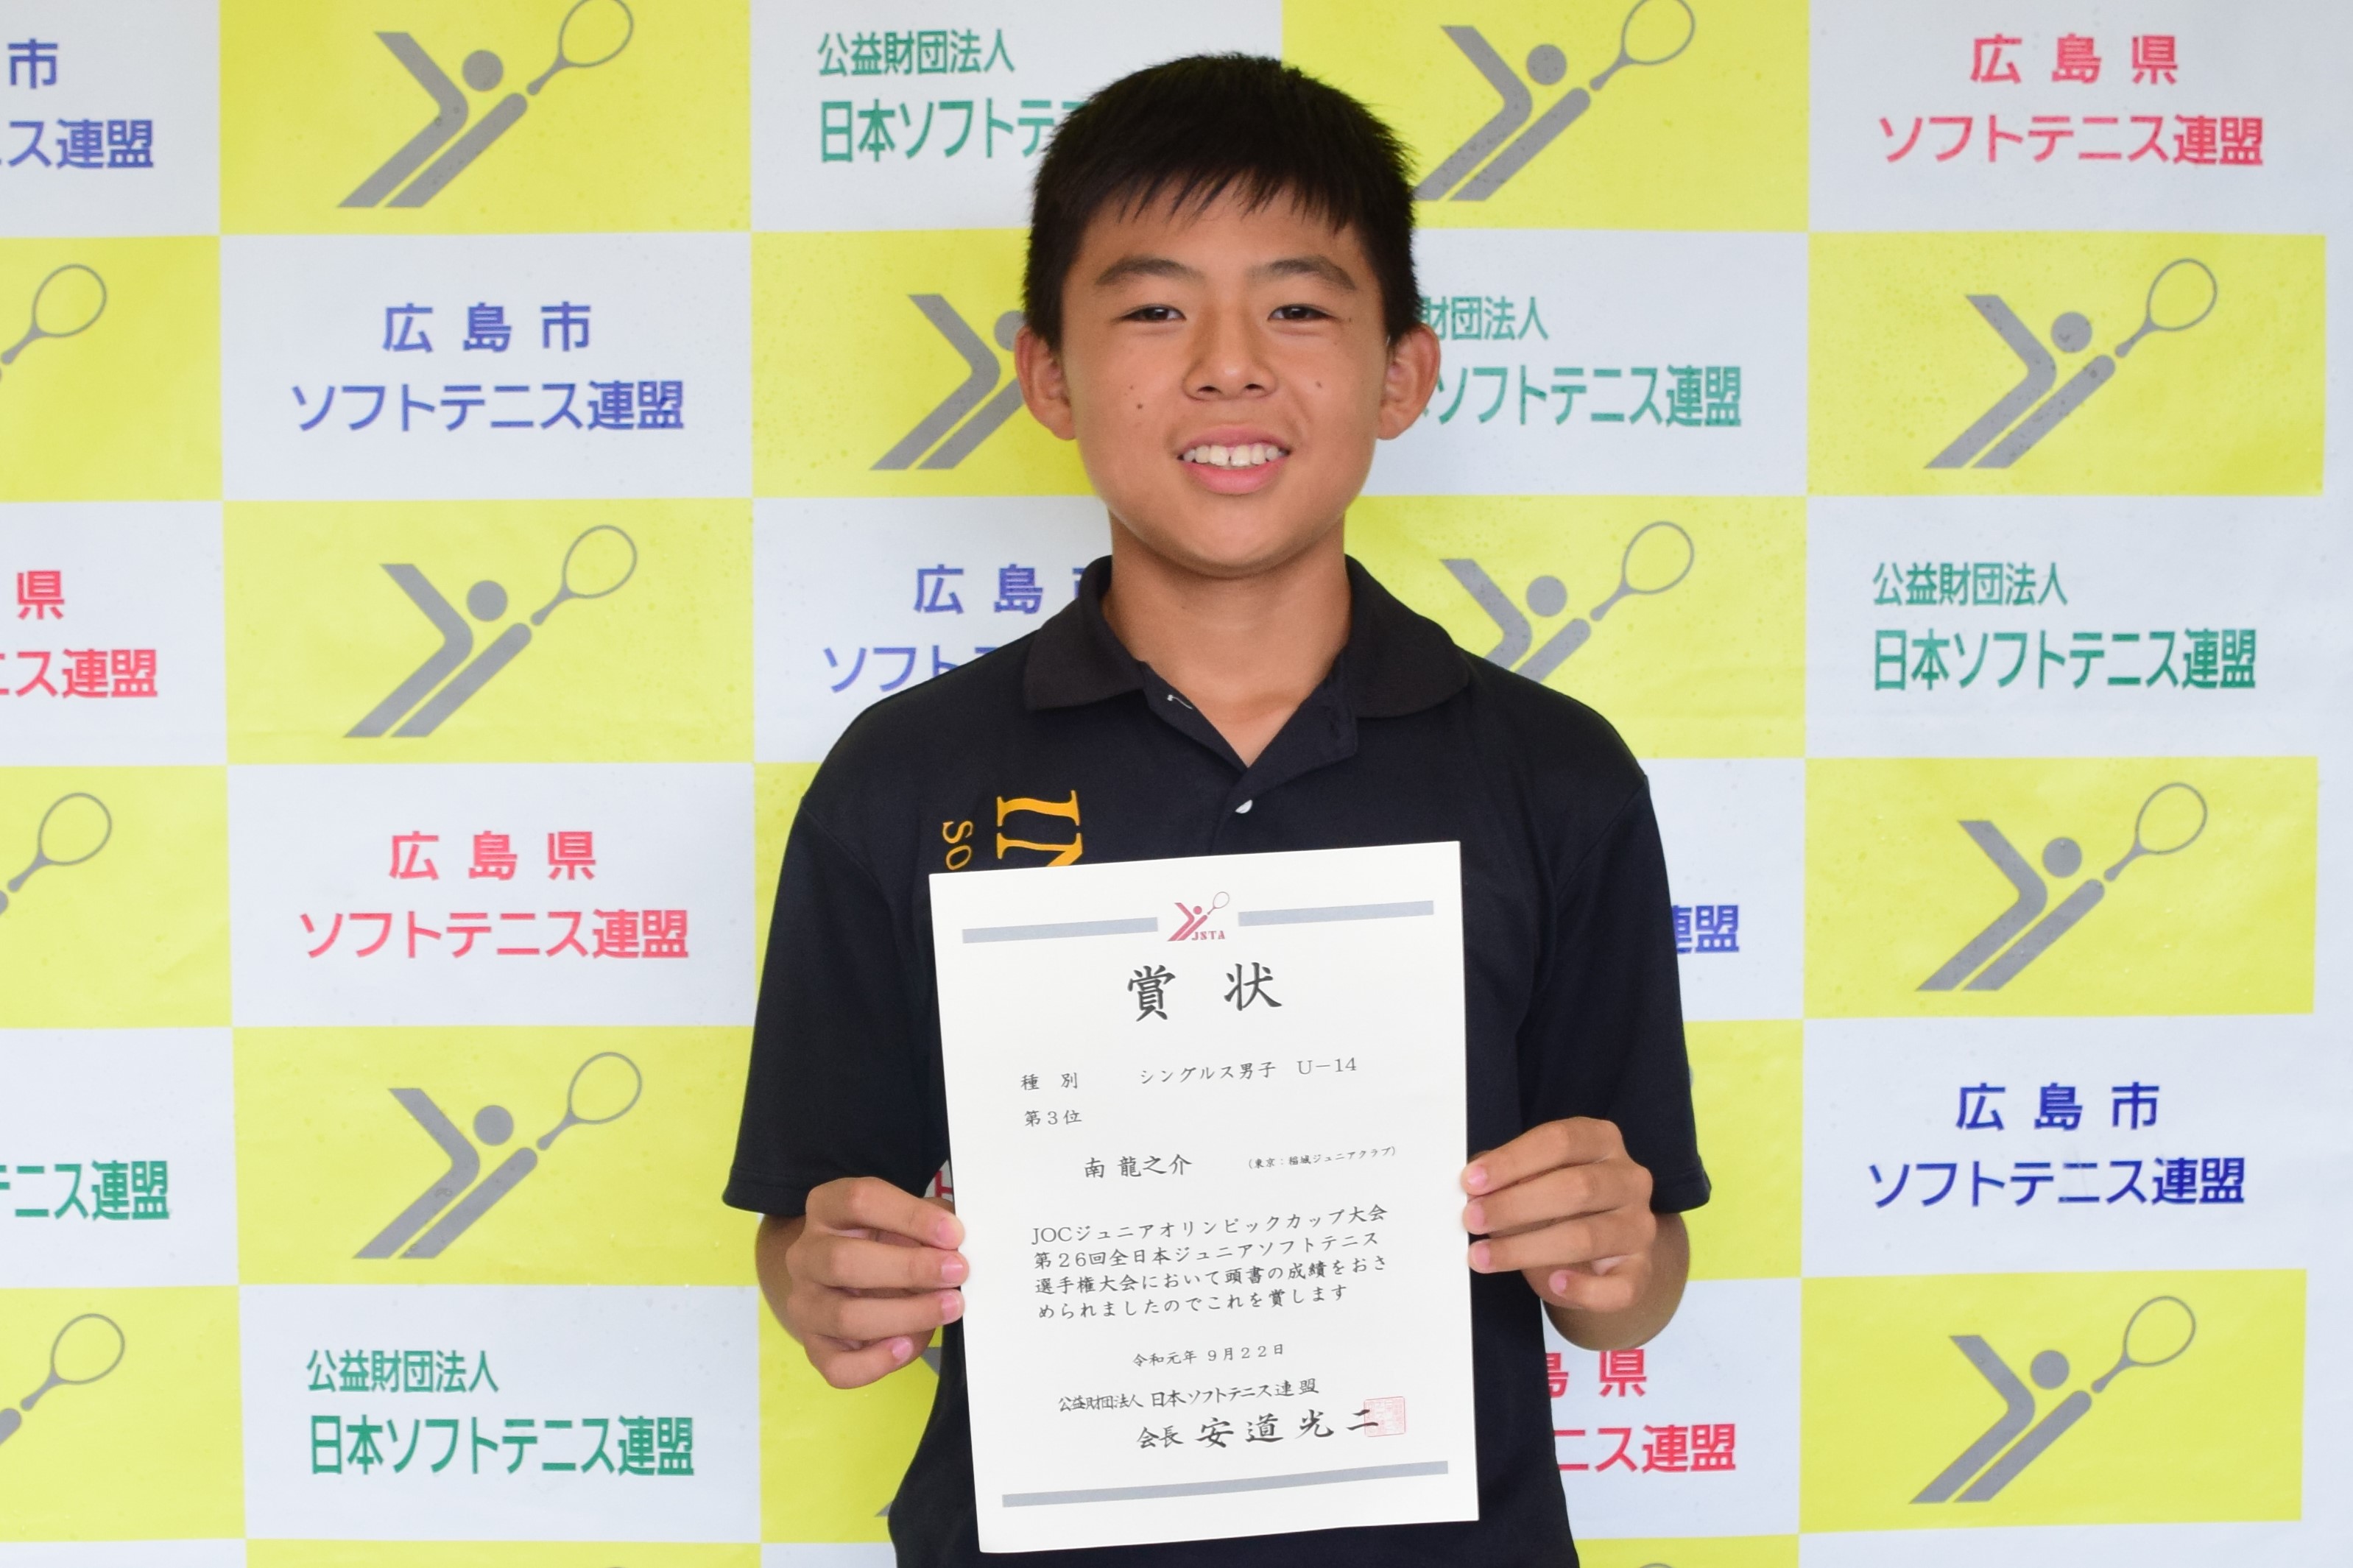 市
ス連盟
公益財団法人
日本ソフトテ
広島県
ソフトテニス連盟
広島市
ソフトテニス連盟
財団法人
ソフトテニス連盟
県
ニス連盟
広島
ソフト
公益財団法人
日本ソフトテニス連盟
広島県
ソフトテニス連盟
連盟
テニス連盟
広島市
ソフトテニス連盟
公益財団法人
日本ソフトテニス連盟
島県
ニス連盟
SO
IN
JSTA
賞状
種別 シングルス男子 U-14
第3位
南 龍之介 (東京:稲城ジュニアクラブ)
JOCジュニアオリンピックカップ大会
第26回全日本ジュニアソフトテニス
選手権大会において頭書の成績をおさ
められましたのでこれを賞します
令和元年 9月22日
公益財団法人 日本ソフトテニス連盟
会長 安道光二